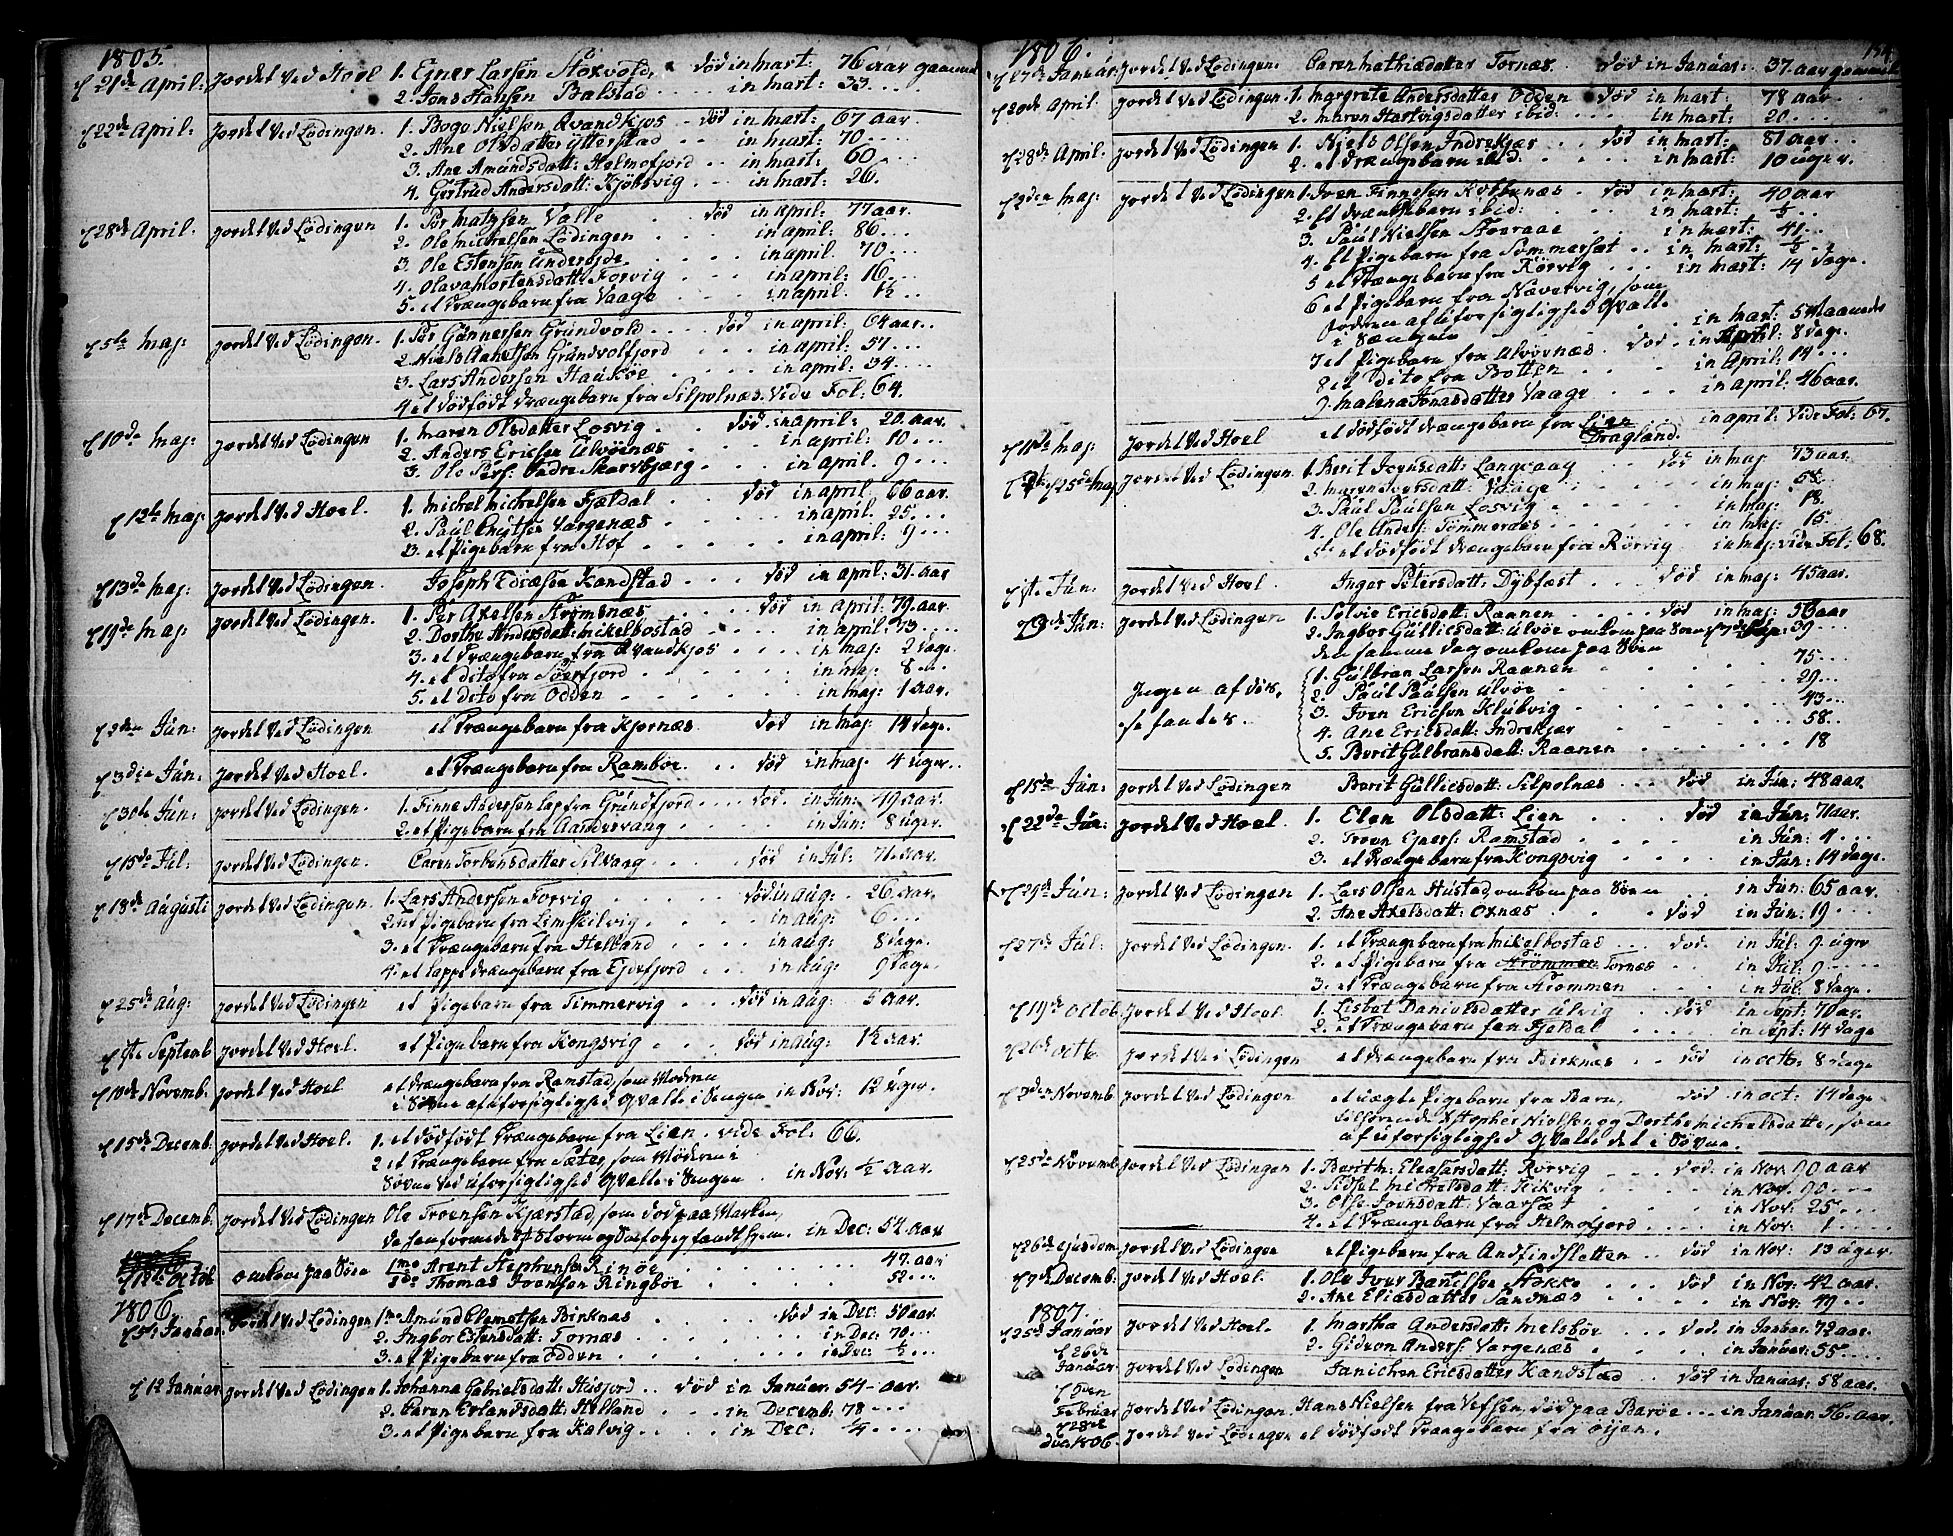 1805.
d 21de April: Jordet ved Hoel 1. Ejner Larsen Stoxvold, død in Mart: 76 aar gammel
2. Jens Hansen Balstad in Mart: 33
d 22de April: Jordet ved Lødingen. 1. Boge Nielsen Qvandkjos død in Mart: 67 aar
2. Ane Olsdatter Ytterstad in Mart: 70
3. Ane Amundsdatt: Helmofjord in Mart: 60
4. Gertrud Andersdatt: Kjøbsvig in Mart: 26
d 28de April. Jordet ved Lødingen 1. Per Matzsen Valle død in April: 77 aar.
2. Ole Michelsen Lødingen in April: 86
3. Ole Estensen in April. 70
4. Olava Mortensdatt: Forvig in April: 16
5. et Drængebarn fra Vaage in April. 1½
d 5te Maj: Jordet ved Lødingen. 1. Per Gunnersen Grundvold død in April: 64 aar
2. Niels Grundvolfjord in April: 57
3. Lars Andersen Haukøe in April: 34
4 et dødfødt Drængebarn fra Silpolnæs. Vide Fol: 64.
d 10de Maj: Jordet ved Lødingen 1. Maren Olsdatter Losvig død in April: 20. aar
2. Anders Ericsen Ulvøenæs in April: 10
3. Ole Pers: in April. 9
d 12te Maj: Jordet ved Hoel. 1. Michel Michelsen Fjeldal død in April: 66 aar.
2. Paul Vargenæs in April. 25
3. et Pigebarn fra Hof in April: 9
d 13de Maj: Jordet ved Lødingen. Joseph Kandstad død in April: 31. aar
d 19de Maj Jordet ved Lødingen. 1. Per Axelsen Strømsnæs død in April: 79. aar.
2. Dorthe Andersdatt: Mikelbostad in April: 73
3. et Drængebarn fra Qvandkjos in Maj: 2 dage.
4. et dito fra in Maj: 8
5. et dito fra Odden in Maj: 1 aar.
d 2den Jun: Jordet ved Lødingen et Drængebarn fra Kjernæs. død in Maj: 14 dage.
d 3die Jun: Jordet ved Hoel. et Drængebarn fra Rambøe død in Maj: 4 uger.
d 30te Jun: Jordet ved Lødingen. 1. Finne Andersen Lap fra Grundfjord død. in Jun: 49. aar.
2. et Pigebarn fra in Jun: 8 uger.
d 15de Jul: Jordet ved Lødingen. Caren Torbensdatter Selvaag død in Jul: 71. aar.
d 18de Augusti Jordet ved Lødingen. 1. Lars Andersen Forvig død in Aug: 26. aar.
2. et Pigebarn fra in Aug: 6
3. et Drængebarn fra Helland in Aug: 8 dage.
4. et Lappe Drængebarn fra in Aug: 9 dage.
d 25de Aug: Jordet ved Lødingen et Pigebarn fra Timmervig død in Aug: 5 aar.
d 1ste Septemb Jordet ved Hoel. et Pigebarn fra Kongsvig død in Aug: 1½ aar.
d 10de Novemb: Jordet ved Hoel et Drængebarn fra Ramstad, som Moderen
i Søvne af Uforsigtighed qvalte i Sengen in Nov: 12 uger.
d 15de Decemb: Jordet ved Hoel. 1. et dødfødt Drængebarn fra Lien. vide Fol: 66.
2 et Drængebarn fra Sæter, som Moderen i
Søvne ved Uforsigtighed qvalte i Sengen. in Nov: ½ aar.
d 17de Decemb: Jordet ved Lødingen Ole Troensen Kjærstad, som død paa Marken,
in Dec: 54. aar
d 12te Octob omkom paa Søen 1mo Arent Stephensen Rinøe 47. aar
2do Thomas Joensen Ringbøe 52
1806.
d 5te Januar Jordet ved Lødingen 1mo Amund Clemetsen Birknæs død in Dec: 50 aar
2. Ingbor Estensdatt: Tornæs in Dec: 70
3. et Pigebarn fra Odden in Dec: ½
d 12 Januar Jordet ved Lødingen 1. Johanna Gabrielsdatt: Husjord død in Januar. 54. aar.
2. Karen Erlandsdatt: Helland in Decemb: 78
3. et Pigebarn fra Kalvig in Dec: ¼
1806.
d 17de Januar Jordet ved Lødingen: Caren Mathiædatter Tornæs. død in Januar: 37. aar gammel
d 20de April. Jordet ved Lødingen. 1. Margrete Andersdatter Odden død in Mart: 78 aar
2. Maren Hartvigsdatter ibid: in Mart: 20
d 28de April. Jordet ved Lødingen 1. Niels Olsen Indrekjær død in Mart: 81 aar
2. et Drængebarn ibid. in Mart: 10 uger.
d 2den Maj: Jordet ved Lødingen 1. Iver Finnesen Kobbenæs død in Mart: 40 aar
2. et Drængebarn ibid: in Mart: ½
3. Paul Nielsen Storaae in Mart: 41
4. et Pigebarn fra Sommersæt in Mart: ½
5 et Drængebarn fra Rørvig in Mart: 14 dage.
6 et Pigebarn fra Nævervig, som
Moderen af Uforsigtighed qvalte
i Sængen in Mart: 5 Maaneder
7 et Pigebarn fra Ulvøenæs. død. in April: 8 dage.
8 et dito fra Botten in April: 14
9. Malena Jonasdatter Vaage in April: 46 aar.
d 11te Maj: Jordet ved Hoel et dødfødt Drængebarn fra Lien Dragland. in April: Vide Fol: 67.
d 25de Maj Jordet ved Lødingen. 1. Berit Joensdatt: Langvaag død in Maj 73 aar.
2. Maren Iversdatt: Vaage in Maj:
3. Paul Paulsen Losvig in Maj: 18
4. Ole Anders: Tømmeraas in Maj: 15
5. et dødfødt Drængebarn fra Rørvig in Maj: vide Fol: 68.
d 1ste Jun: Jordet ved Hoel. Inger Petersdatt: Dybfest død in Maj: 45 aar.
Jun: Jordet ved Lødingen 1. Sølvie Ericsdatt: Raanen død in Maj: 56 aar
2. Ingbor Gulliesdatt: Ulvøe omkom paa Søen 39
den samme Dag omkom paa Søen
Ingen af disse fandtes.
1. Gulbran Larsen Raanen 75
2. Paul Paulsen Ulvøe 29
3. Iven Ericsen Klubvig 43
4. Ane Ericsdatt: Indrekjær 58
5. Berit Gulbransdatt: Raanen 18
d 15de Jun: Jordet ved Lødingen Berit Gulliesdatt: Silpolnæs død in Jun: 48 aar
d 22de Jun: Jordet ved Hoel. 1. Elen Olsdatt: Lien død in Jun: 71 aar.
2. Troen Ejners: Ramstad in Jun: 4
3. et Drængebarn fra Kongsvig in Jun: 14 dage.
d 29de Jun: Jordet ved Lødingen 1. Lars Olsen Hustad, omkom paa Søen in Jun: 65 aar.
2. Ane Axelsdatt: Oxnæs død in Jun: 19
d 27de Jul: Jordet ved Lødingen. 1. et Drængebarn fra Mikelbostad død. in Jul: 9 uger
2. et Pigebarn fra Strømmen Tornæs in Jul: 9
3. et Drængebarn fra Strommen in Jul: 8 dage.
d 19de Octob. Jordet ved Hoel. 1. Lisbet Danielsdatter Ulvig død in Sept: 70 ar.
2. et Drængebarn fra Fjeldal in Sept: 14 dage
d 26de Octb. Jordet ved Lødingen et Drængebarn fra Birknæs død in Octb: 8 dage
d 2den Novemb. Jordet ved Lødingen et uægte Pigebarn fra Barøe, død in Oct: 14 dage
tilhørende Stopher Nielsen og Dorthe Michelsdatter, som
af Uforsigtighed qvalte det i Søvne.
d 25de Novemb Jordet ved Lødingen 1. Berith: Eleasarsdatt: Rørvig død. in Nov. 90 aar
2. Sidsel Michelsdatt: Kikvig in Nov. 90
3. Else Joensdatt: Vaarsæt in Nov: 25
4. et Drængebarn fra Helmofjord in Nov: 1
d 26de ejusdem Jordet ved Lødingen et Pigebarn fra død in Nov: 13 uger.
d 7de Decemb. Jordet ved Hoel. 1. Ole Iver Bartelsen Stokke død in Nov: 42 aar.
2. Ane Eliasdatter Sandnæs in Nov: 49
1807.
d 25de Januar Jordet ved Hoel. 1. Martha Andersdatt: Melsbøe død. in Januar. 72 aar.
2. Gideon Anders: Vargenæs in Januar: 55
d 26de Januar: Jordet ved Lødingen Janichen Ericsdatter Kandstad død in Januar: 58 aar.
d 5ten Februar Jordet ved Lødingen. Hans Nielsen fra Vefsen, død paa Barøe in Januar. 56. aar
d 28de Dec. 1806. Jordet ved Lødingen et dødfødt Drængebarn fra Øijen.